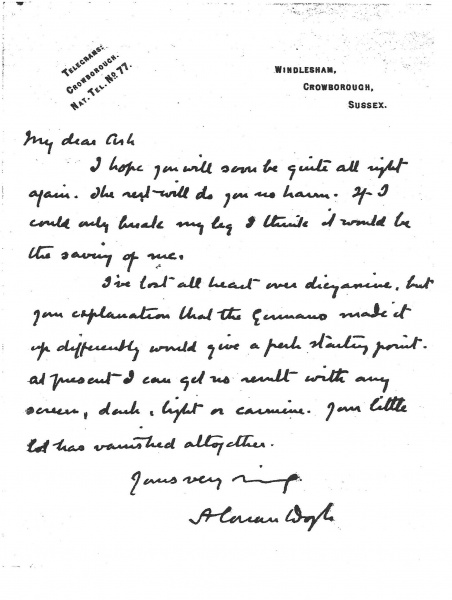 TELEGRAMS:
CROWBOROUGH.
NAT. TEL. NO 77.
WINDLESHAM,
CROWBOROUGH,
SUSSEX.
My dear Ash
I hope you will soon be quite all right
again. The rest will do you no harm. If I
could only break my leg I think it would be
the saving of me.
I've lost all heart over dicyanine, but
your explanation that the Germans made it
up differently would give a fresh starting point.
At present I can get no result with any
screen, dark, light or carmine. Your little
lot has vanished altogether.
Yours very
A Conan Doyle